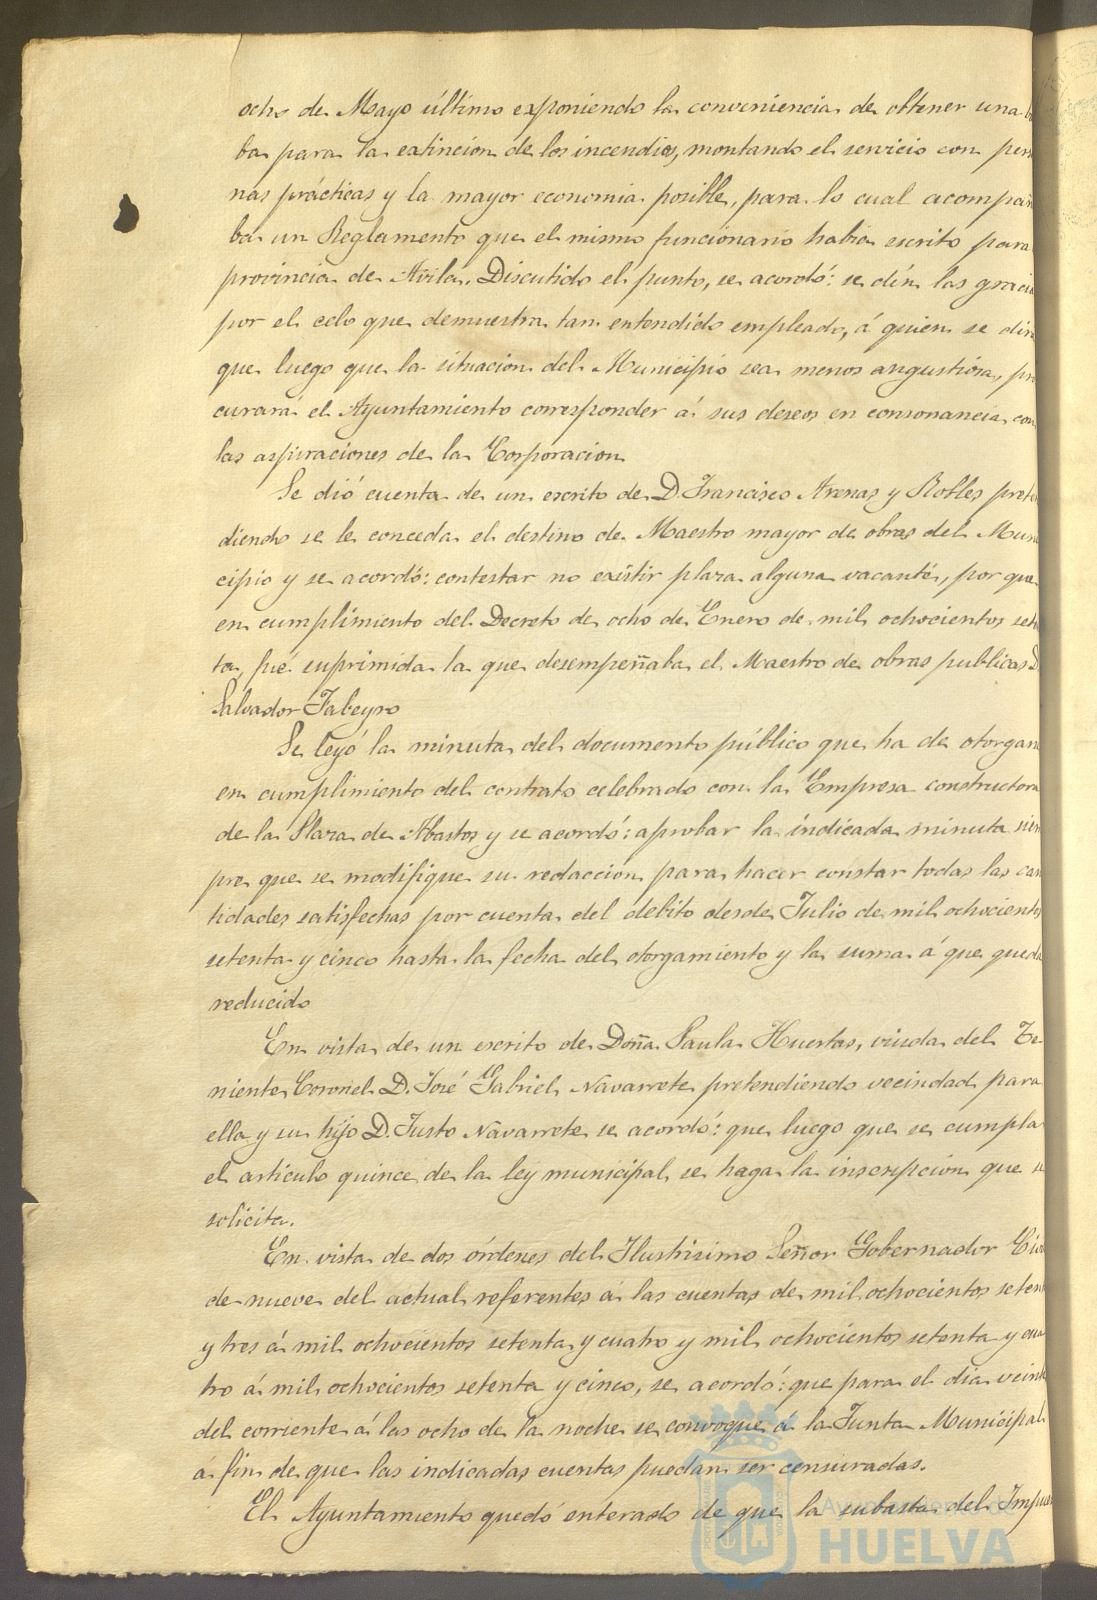 ocho de Mayo último exponiendo la conveniencia de obtener una b
ba para la extincion de los incendios, montando el servicio con per
nas prácticas y la mayor economia posible, para lo cual acompaña
ba un Reglamento que el mismo funcionario habia escrito para
provincia de Avila. Discutido el punto, se acordó: se dén las gracia
por el celo que demuestra tan entendido empleado, á quien se dirá
que luego que la situacion del Municipio sea menos angustiosa, pro
curará el Ayuntamiento corresponder á sus deseos en consonancia con
las aspiraciones de la Corporacion
Se dió cuenta de un escrito de D. Francisco Arenas y Robles preten
diendo se le conceda el destino de Maestro mayor de obras del Muni
cipio y se acordó: contestar no existir plaza alguna vacante, por que
en cumplimiento del Decreto de ocho de Enero de mil ochocientos seten
ta, fué suprimida la que desempeñaba el Maestro de obras publicas D
Salvador Tabeyro
Se leyó la minuta del documento público que ha de otorgar
en cumplimiento del contrato celebrado con la Empresa constructora
de la Plaza de Abastos y se acordó: aprobar la indicada minuta siem
pre que se modifique su redaccion para hacer constar todas las can
tidades satisfechas por cuenta del debito desde Julio de mil ochocientos
setenta y cinco hasta la fecha del otorgamiento y la suma á que queda
reducido
En vista de un escrito de Doña Paula Huertas, viuda del Te-
niente Coronel D. José Gabriel Navarrete pretendiendo vecindad para
ella y su hijo D. Justo Navarrete se acordó: que luego que se cumpla
el articulo quince de la ley municipal se haga la inscripcion que se
solicita.
En vista de dos órdenes del Ilustrisimo Señor Gobernador Civil
de nueve del actual referentes á las cuentas de mil ochocientos seten
y tres á mil ochocientos setenta y cuatro y mil ochocientos setenta y cua
tro á mil ochocientos setenta y cinco, se acordó: que para el dia veinte
del corriente á las ocho de la noche se convoque á la Junta Municipal
á fin de que las indicadas cuentas puedan ser censuradas.
El Ayuntamiento quedó enterado de que la subasta del Impues
Ayuntamiento de
HUELVA